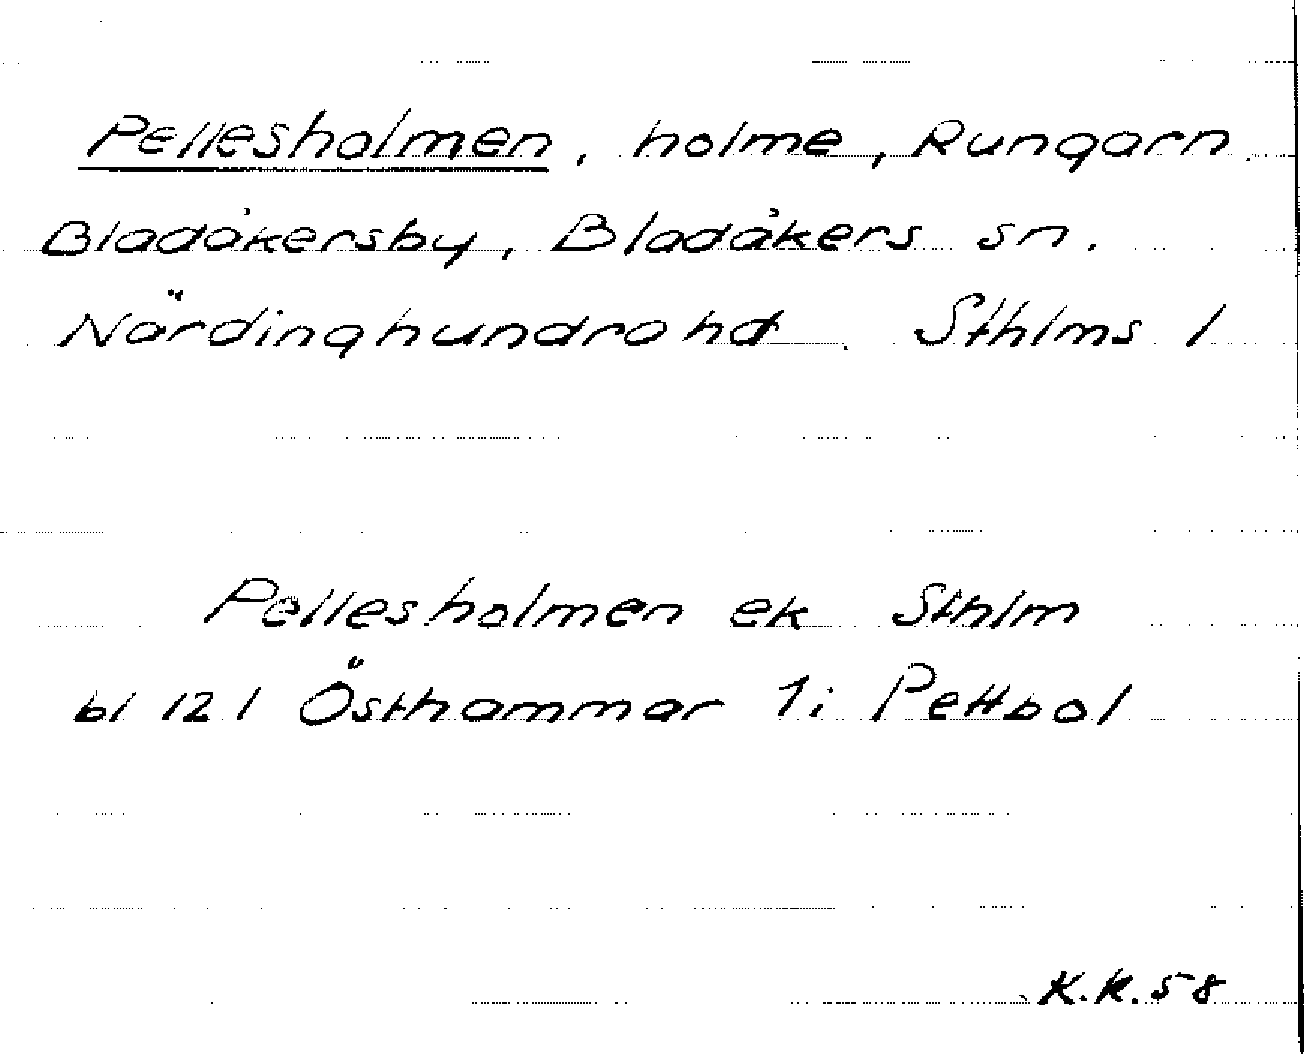 Pellesholmen, holme, Rungarn
Bladåkersby, Bladåkers sn.
Närdinghundra hd. Sthlms l
Pellesholmen ek Sthlm
bl 121 Östhammar 1; Pettbol
K.K.58